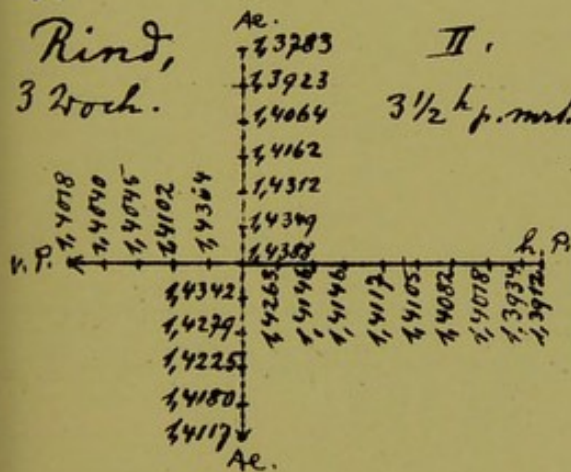 Rind,
3 Woch.
II.
3½ h p. mrt.
Ae.
1,3783
1,3923
1,4064
1,4162
1,4312
1,4349
1,4388
v. P.
1,4018
1,4040
1,4045
1,4102
1,4364
h. P.
1,4265
1,4146
1,4146
1,4117
1,4105
1,4082
1,4018
1,3934
1,3912
1,4342
1,4279
1,4225
1,4180
1,4117
Ae.